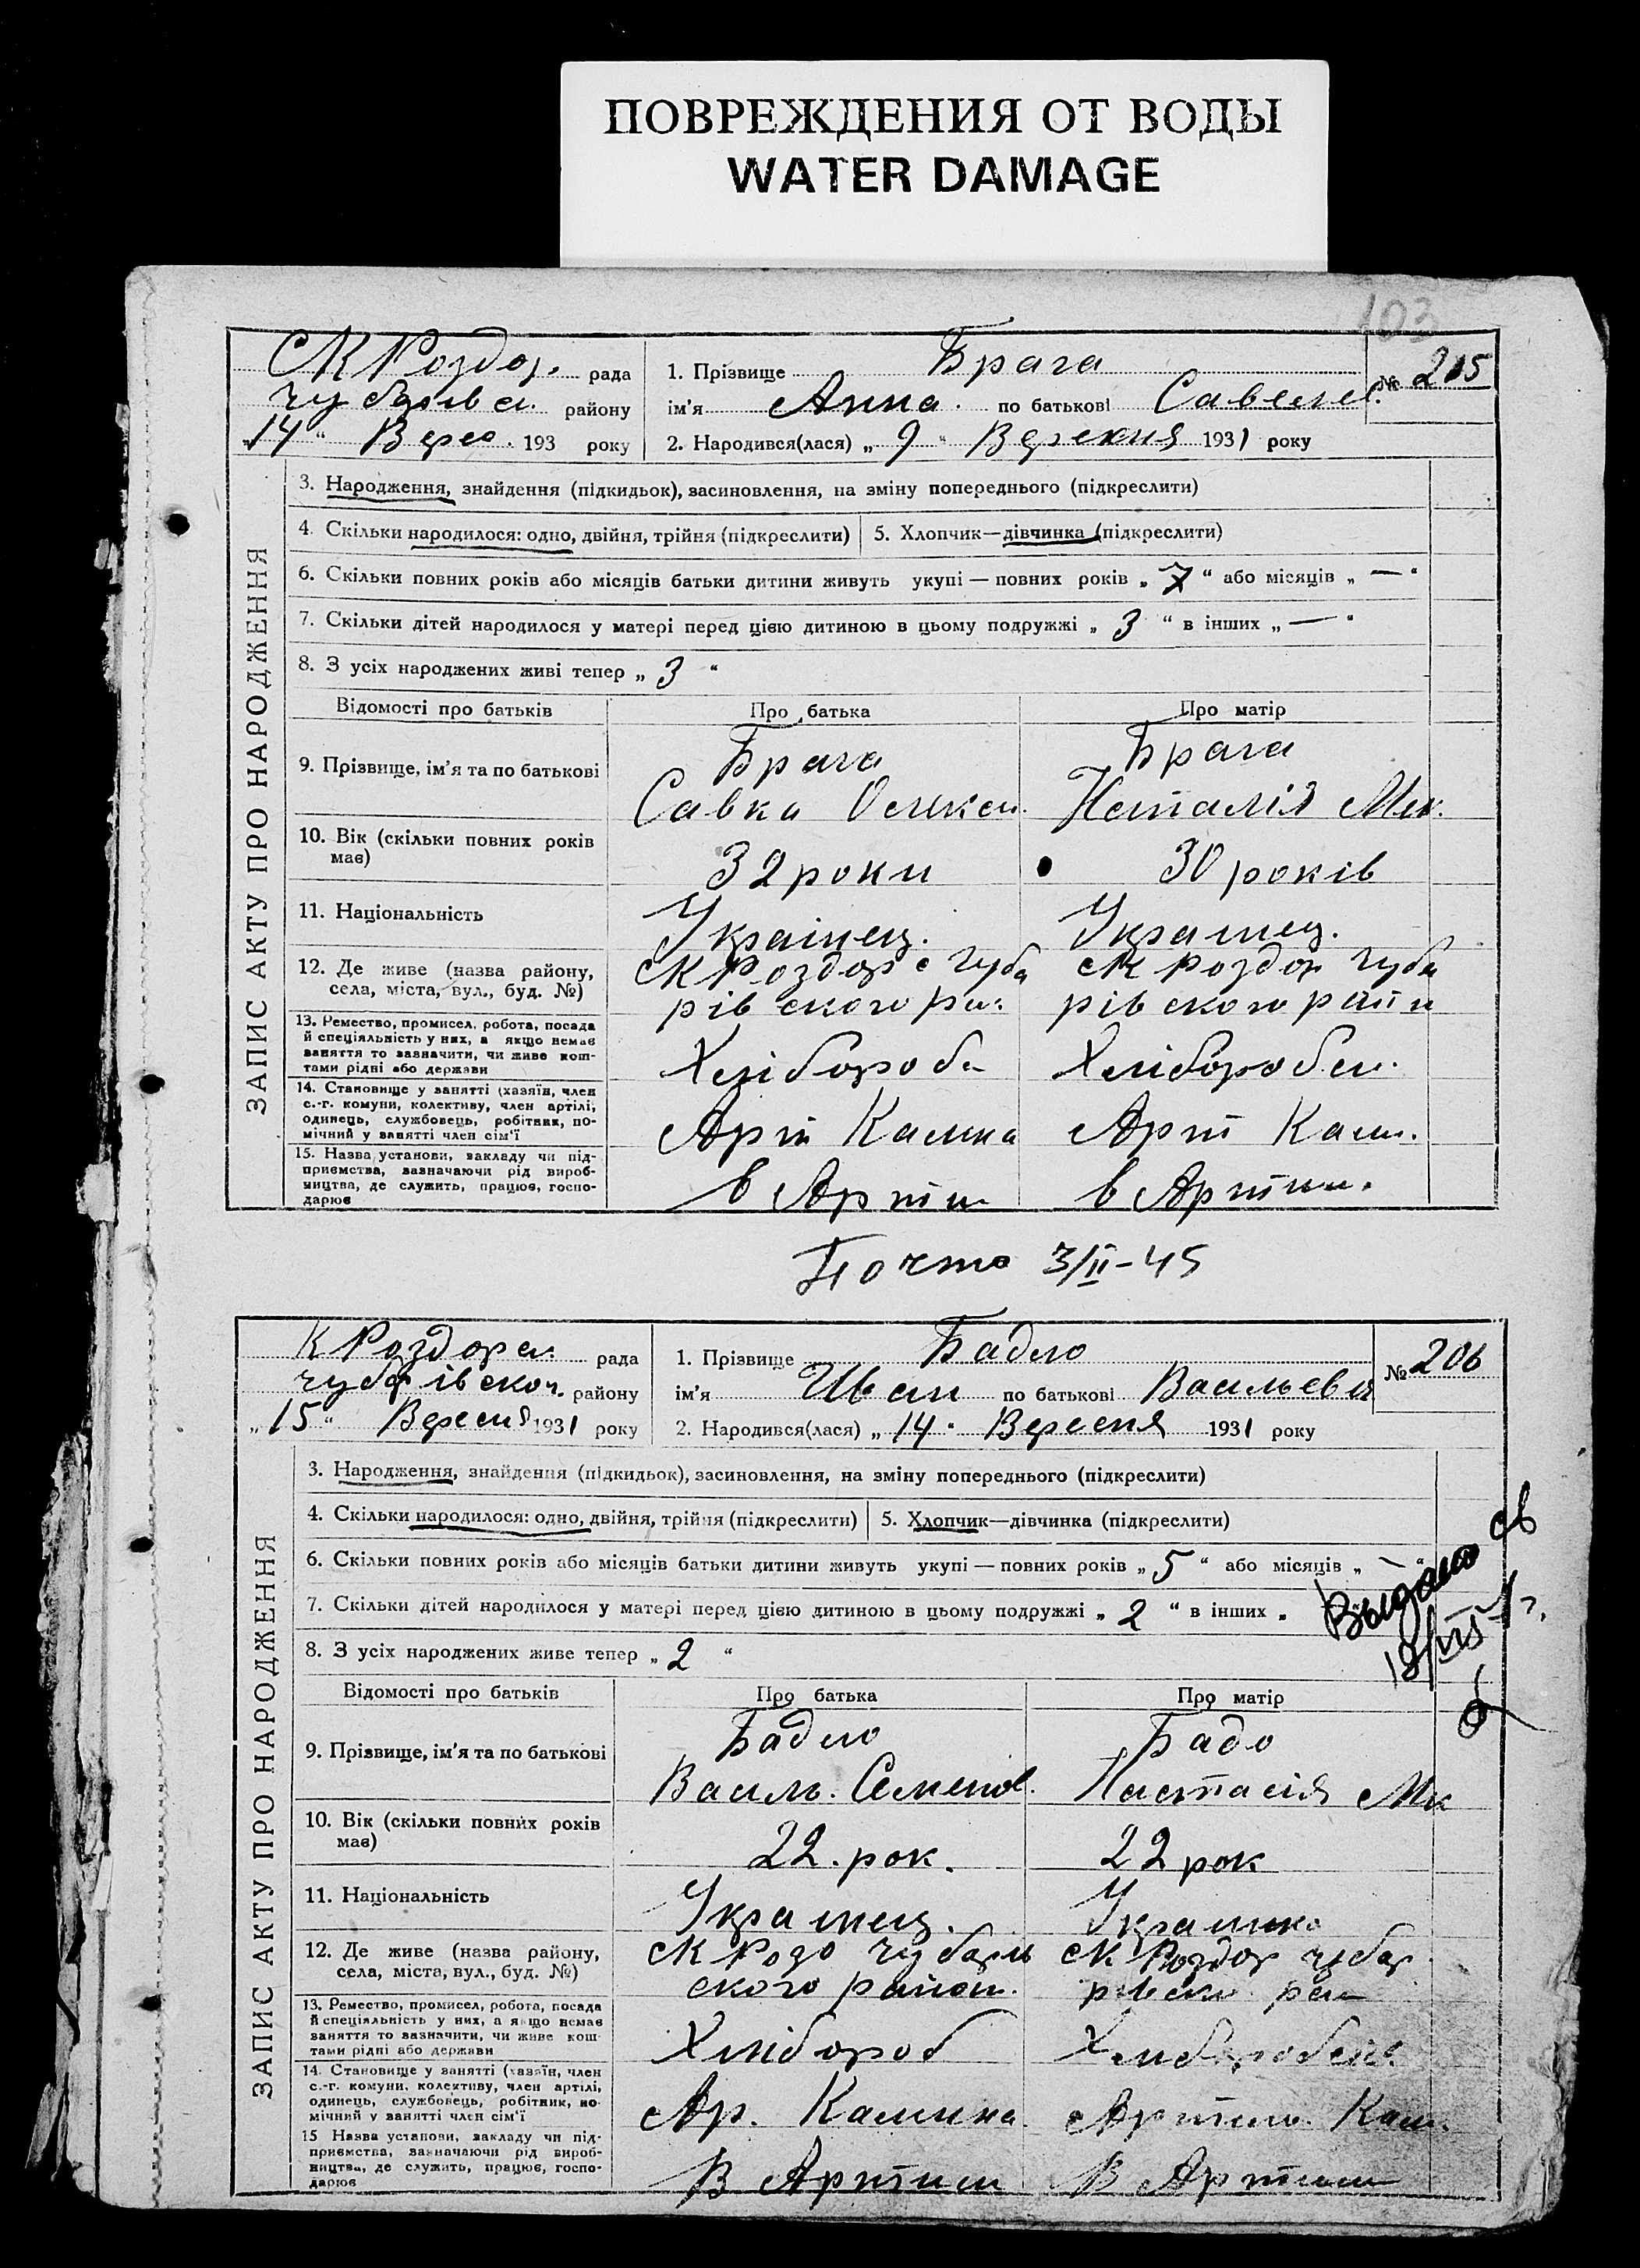 ПОВРЕЖДЕНИЯ ОТ ВОДЫ
WATER DAMAGE
103
СК Роздор. рада
1. Прізвище Брага
№ 205
району
ім'я Анна по батькові Савелев.
„14“ Верес. 193 року
2. Народився(лася) „9“ 1931 року
ЗАПИС АКТУ ПРО НАРОДЖЕННЯ
3. Народження, знайдення (підкидьок), засиновлення, на зміну попереднього (підкреслити)
4. Скільки народилося: одно, двійня, трійня (підкреслити)
5. Хлопчик—дівчинка (підкреслити)
6. Скільки повних років або місяців батьки дитини живуть укупі — повних років „7“ або місяців „—“
7. Скільки дітей народилося у матері перед цією дитиною в цьому подружжі „3“ в інших „—“
8. З усіх народжених живі тепер „3“
Відомості про батьків
Про батька
Про матір
9. Прізвище, ім'я та по батькові
Брага
Савка
Брага
Наталія Мик.
10. Вік (скільки повних років
має)
32 роки
30 років
11. Національність
Українец.
Украінец.
12. Де живе (назва району,
села, міста, вул., буд. №)
СК Роздор с Чуба
рівского ра
СК Роздор Чуба
рівского райн
13. Ремество, промисел, робота, посада
й спеціяльність у них, а якщо немає
заняття то зазначити, чи живе кош-
тами рідні або держави
Хлібороб
14. Становище у занятті (хазяїн, член
с.-г. комуни, колективу, член артілі,
одинець, службовець, робітник, по-
мічний у занятті член сім'ї
Арт Калина
Арт Кали.
15. Назва установи, закладу чи під-
приємства, зазначаючи рід вироб-
ництва, де служить, працює, госпо-
дарює
в Артили
в Артили.
3/II-45
К Роздорс. рада
1. Прізвище Бадло
№ 206
Чубарівског. району
ім'я Иван по батькові Васильевич
„15“ Вересня 1931 року
2. Народився(лася) „14“ Вересня 1931 року
ЗАПИС АКТУ ПРО НАРОДЖЕННЯ
3. Народження, знайдення (підкидьок), засиновлення, на зміну попереднього (підкреслити)
4. Скільки народилося: одно, двійня, трійня (підкреслити)
5. Хлопчик—дівчинка (підкреслити)
6. Скільки повних років або місяців батьки дитини живуть укупі — повних років „5“ або місяців „—“
7. Скільки дітей народилося у матері перед цією дитиною в цьому подружжі „2“ в інших „
8. З усіх народжених живе тепер „2“
Выдано св
Відомості про батьків
Про батька
Про матір
9. Прізвище, ім'я та по батькові
Бадло
Василь. Семенов.
Бадо
Настасія Мик
10. Вік (скільки повних років
має)
22. рок.
22 рок
11. Національність
Украінец.
Украинка
12. Де живе (назва району,
села, міста, вул., буд. №)
СК Розд Чубарів
ского район.
СК Роздор Чубар
рівско рай
13. Ремество, промисел, робота, посада
й спеціяльність у них, а якщо немає
заняття то зазначити, чи живе кош-
тами рідні або держави
Хлібороб
14. Становище у занятті (хазяїн, член
с.-г. комуни, колективу, член артілі,
одинець, службовець, робітник, по-
мічний у занятті член сім'ї
Ар. Калина
Артель. Кали.
15 Назва установи, закладу чи під-
приємства, зазначаючи рід вироб-
ництва, де служить, працює, госпо-
дарює
В Артили
В Артили